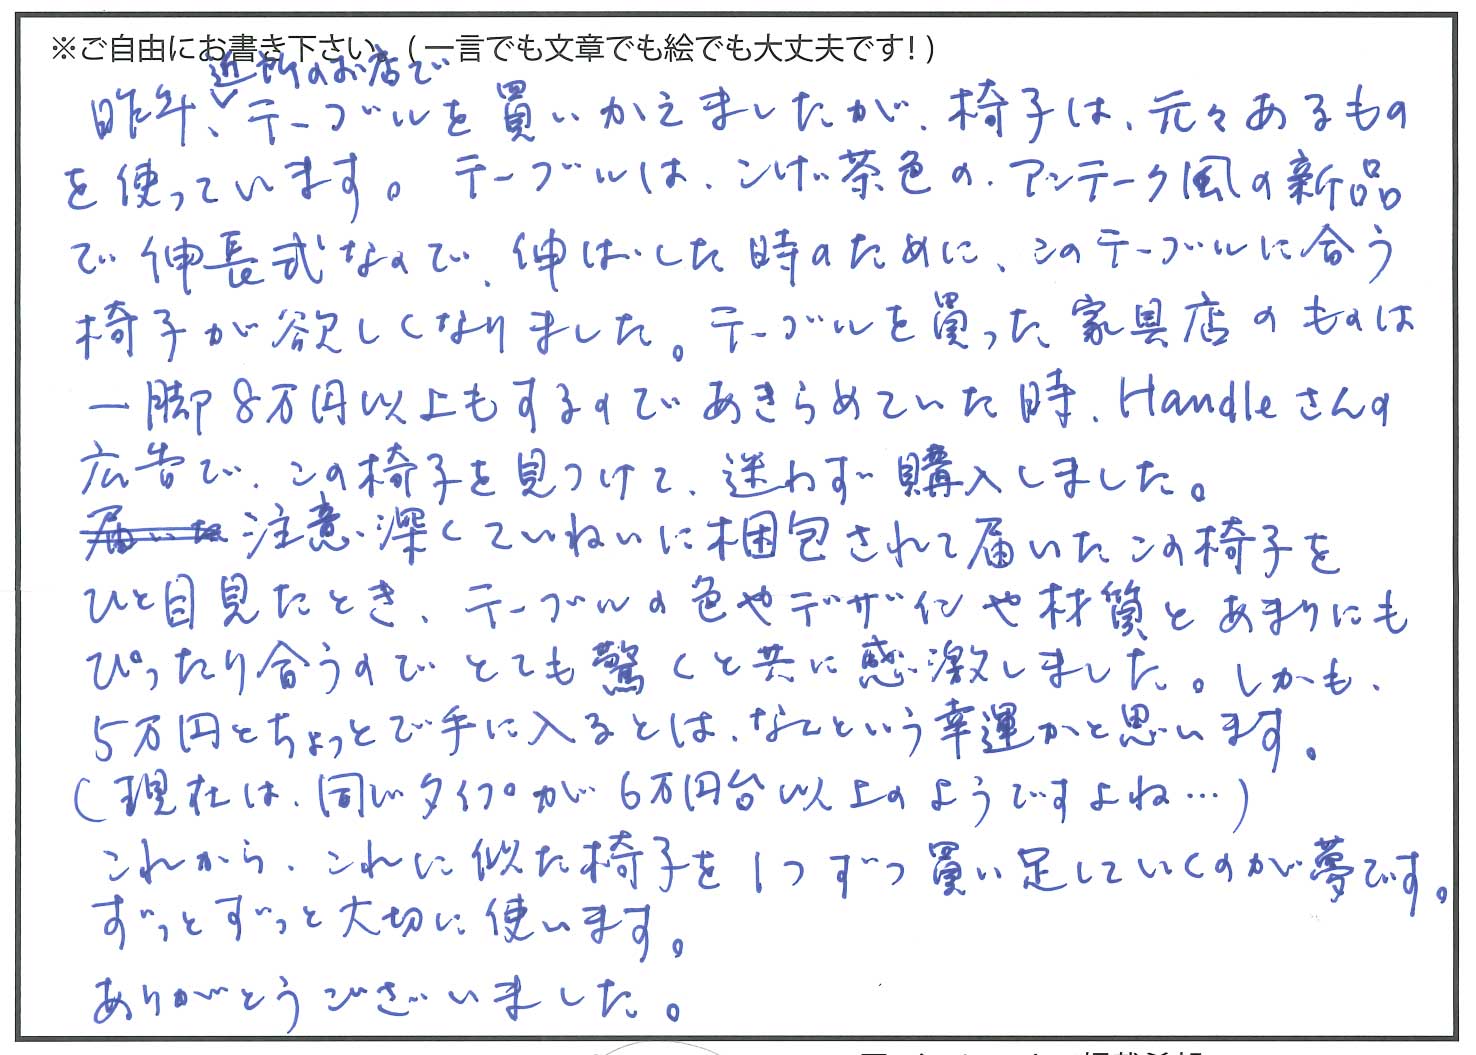 ※ご自由にお書き下さい。(一言でも文章でも絵でも大丈夫です!)
近所のお店で
昨年、テーブルを買いかえましたが、椅子は、元々あるもの
を使っています。テーブルは、こげ茶色の、アンテーク風の新品
で伸長式なので、伸ばした時のために、このテーブルに合う
椅子が欲しくなりました。テーブルを買った家具店のものは
一脚8万円以上もするのであきらめていた時、Handleさんの
広告で、この椅子を見つけて、迷わず購入しました。
届いた 注意深くていねいに梱包されて届いたこの椅子を
ひと目見たとき、テーブルの色やデザインや材質とあまりにも
ぴったり合うのでとても驚くと共に感激しました。しかも、
5万円とちょっとで手に入るとは、なんという幸運かと思います。
(現在は、同じタイプが6万円台以上のようですよね…)
これから、これに似た椅子を1つずつ買い足していくのが夢です。
ずっとずっと大切に使います。
ありがとうございました。